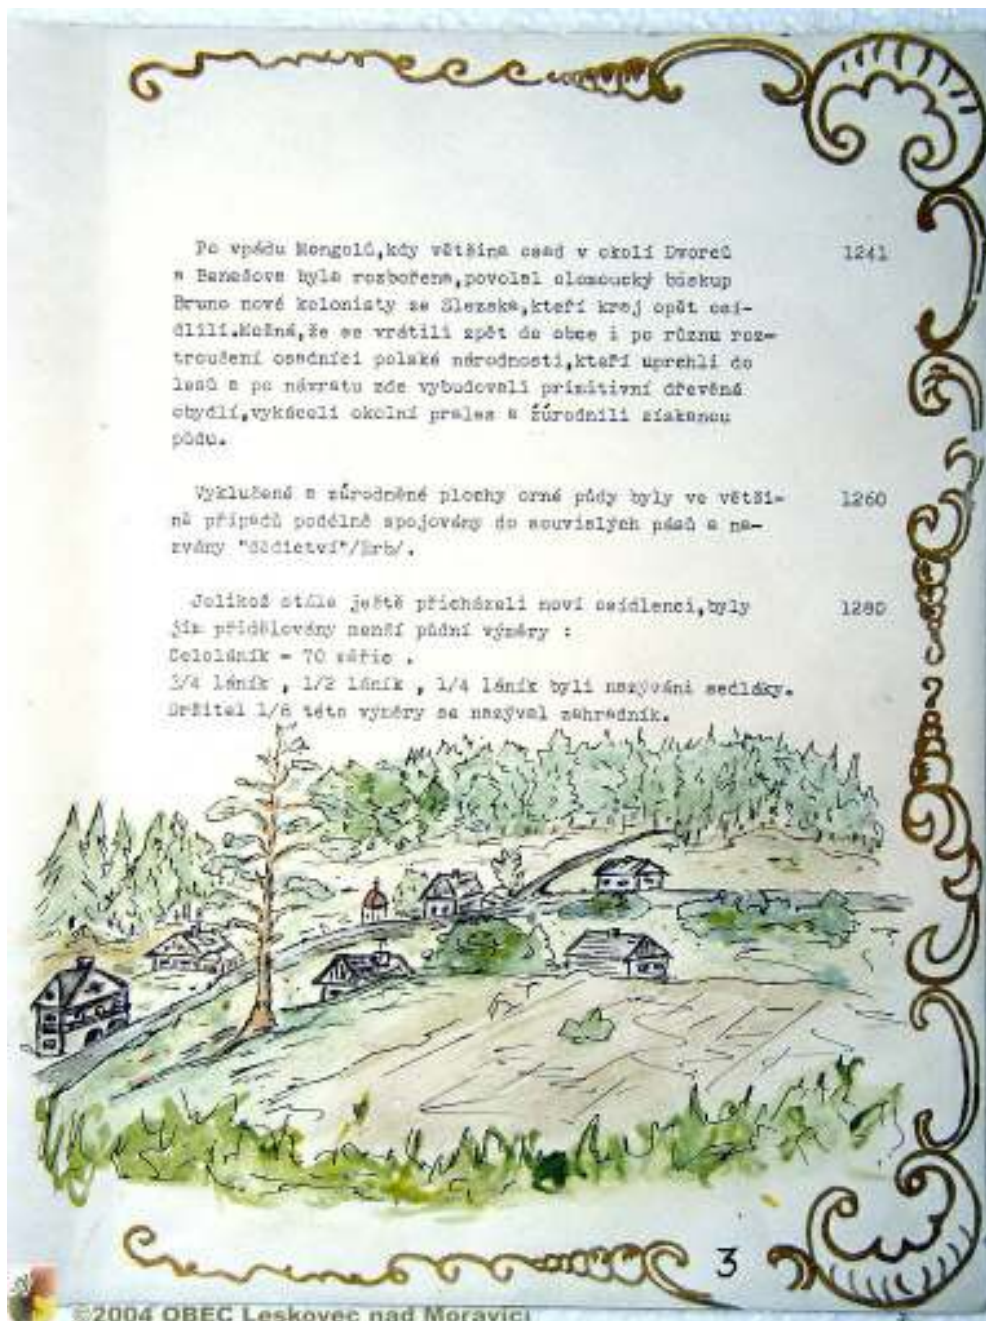 Po vpádu Mongolů,kdy většina osad v okolí Dvorců 1241
a Benešova byla rozbořena,povolal olomoucký biskup
Bruno nové kolonisty ze Slezska,kteří kraj opět osí-
dlili.Možná,že se vrátili zpět do obce i po různu roz-
troušení osadníci polské národnosti,kteří uprchli do
lesů a po návratu zde vybudovali primitivní dřevěná
obydlí,vykáceli okolní prales a zúrodnili získanou
půdu.
Vyklučené a zúrodněné plochy orné půdy byly ve větši- 1260
ně případů podélně spojovány do souvislých pásů a na-
zvány "dědictví"/Erb/.
Jelikož stále ještě přicházeli noví osídlenci,byly 1280
jim přidělovány menší půdní výměry :
Celoláník = 70 měřic .
3/4 láník , 1/2 láník , 1/4 láník byli nazýváni sedláky.
Držitel 1/8 této výměry se nazýval zahradník.
3
©2004 OBEC Leskovec nad Moravicí